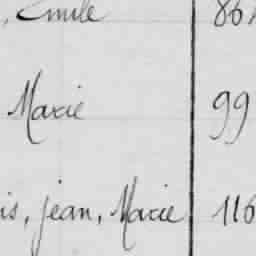 , Emile 86
Marie 99
is, jean, Marie 116